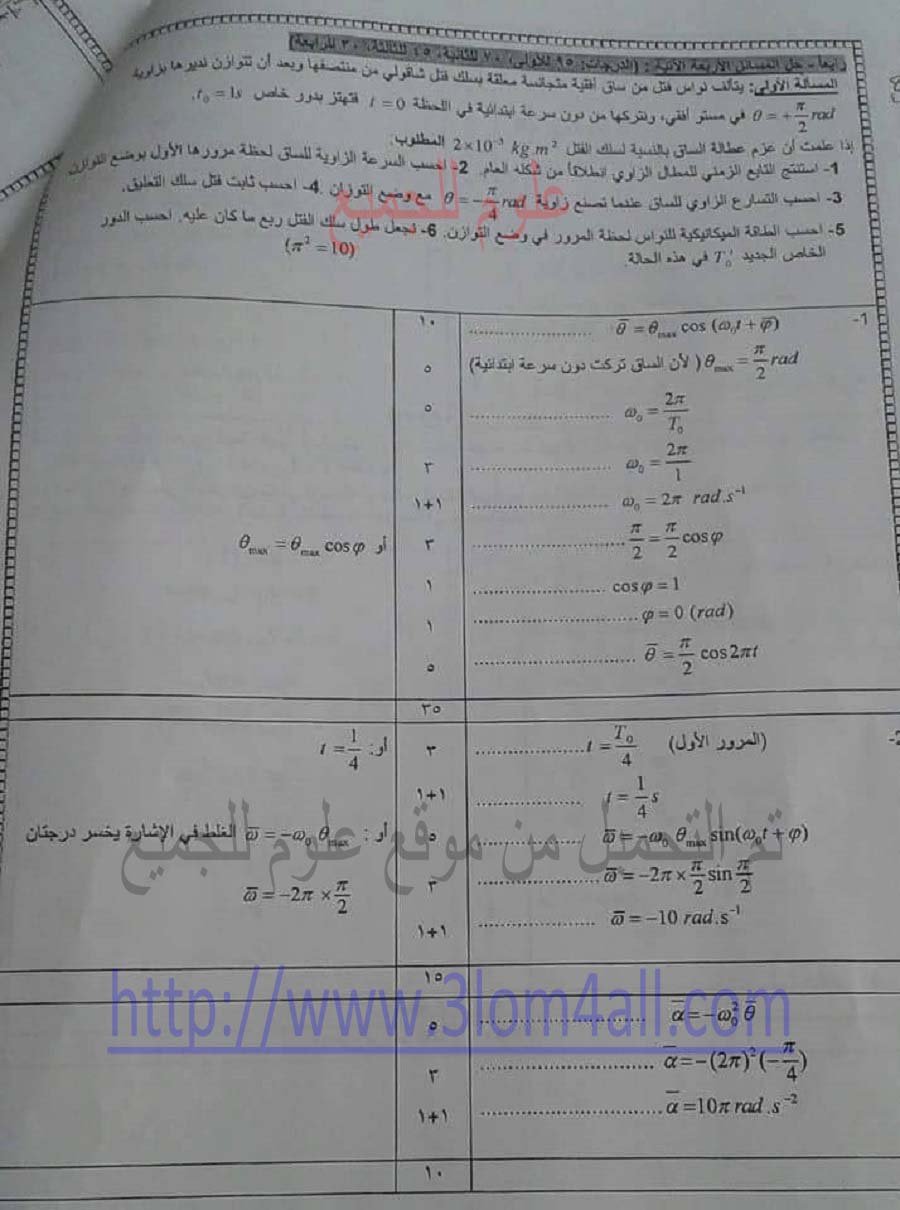 رابعاً- حل المسائل الأربعة الآتية : (الدرجات: ٩٥ للأولى، ٧٠ للثانية، ٤٥ للثالثة، ٣٠ للرابعة)
المسألة الأولى: يتألف نواس فتل من ساق أفقية متجانسة معلقة بسلك فتل شاقولي من منتصفها وبعد أن تتوازن نديرها بزاوية
θ = +π/2 rad في مستو أفقي، ونتركها من دون سرعة ابتدائية في اللحظة t = 0 فتهتز بدور خاص t₀ = 1s.
إذا علمت أن عزم عطالة الساق بالنسبة لسلك الفتل 2×10⁻³ kg m² المطلوب:
1- استنتج التابع الزمني للمطال الزاوي انطلاقاً من شكله العام. 2- احسب السرعة الزاوية للساق لحظة مرورها الأول بوضع التوازن.
3- احسب التسارع الزاوي للساق عندما تصنع زاوية θ = −π/4 rad مع وضع التوازن. 4- احسب ثابت فتل سلك التعليق.
5- احسب الطاقة الميكانيكية للنواس لحظة المرور في وضع التوازن. 6- نجعل طول سلك الفتل ربع ما كان عليه. احسب الدور
الخاص الجديد T₀' في هذه الحالة. (π² = 10)
علوم للجميع
1- θ̄ = θmax cos (ω₀t + φ̄) ........................ ١٠
θmax = π/2 rad ( لأن الساق تركت دون سرعة ابتدائية) ٥
ω₀ = 2π/T₀ ........................ ٥
ω₀ = 2π/1 ........................ ٣
ω₀ = 2π rad.s⁻¹ ........................ ١+١
π/2 = π/2 cos φ ........................ ٣ أو θmax = θmax cos φ
cos φ = 1 ........................ ١
φ = 0 (rad) ........................ ١
θ̄ = π/2 cos 2πt ........................ ٥
٣٥
2- (المرور الأول) t = T₀/4 ........................ ٣ أو: t = 1/4
t = 1/4 s ........................ ١+١
ω̄ = −ω₀ θmax sin(ω₀t + φ) ........................ ٥ أو : ω̄ = −ω₀ θmax الغلط في الإشارة يخسر درجتان
تم التحميل من موقع علوم للجميع
ω̄ = −2π × π/2 sin π/2 ........................ ٣ ω̄ = −2π × π/2
ω̄ = −10 rad.s⁻¹ ........................ ١+١
١٥
http://www.3lom4all.com
ᾱ = −ω₀² θ̄ ........................ ٥
ᾱ = −(2π)² (−π/4) ........................ ٣
ᾱ = 10π rad.s⁻² ........................ ١+١
١٠